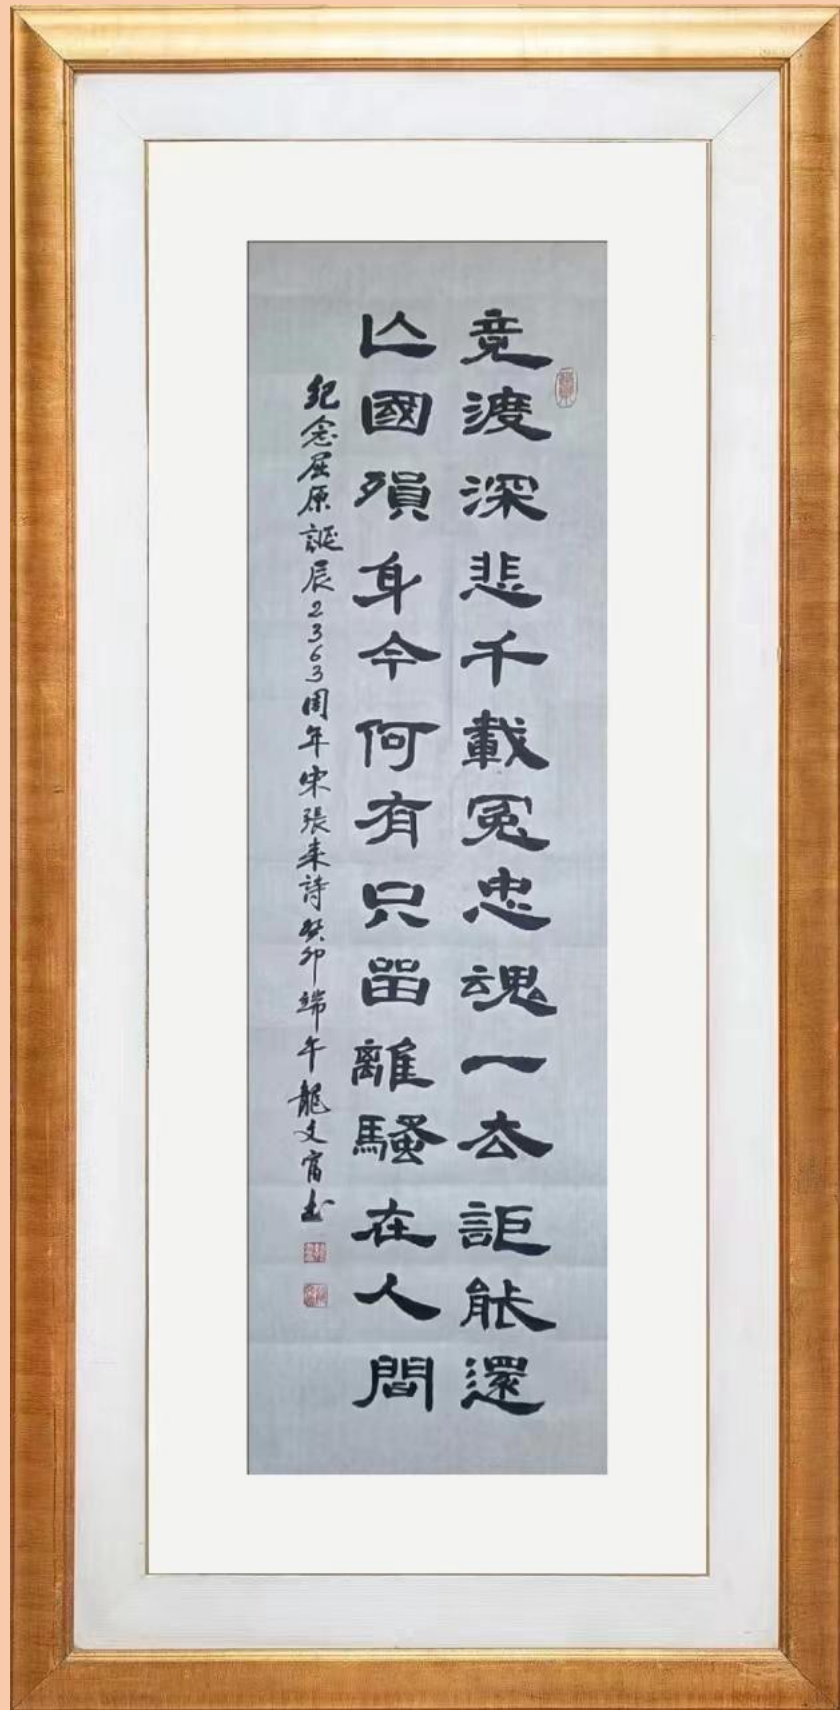 竞渡深悲千載冤忠魂一去詎能還
亾國殞身今何有只留離騷在人間
紀念屈原誕辰2363周年宋張耒詩癸卯端午龍文甯书